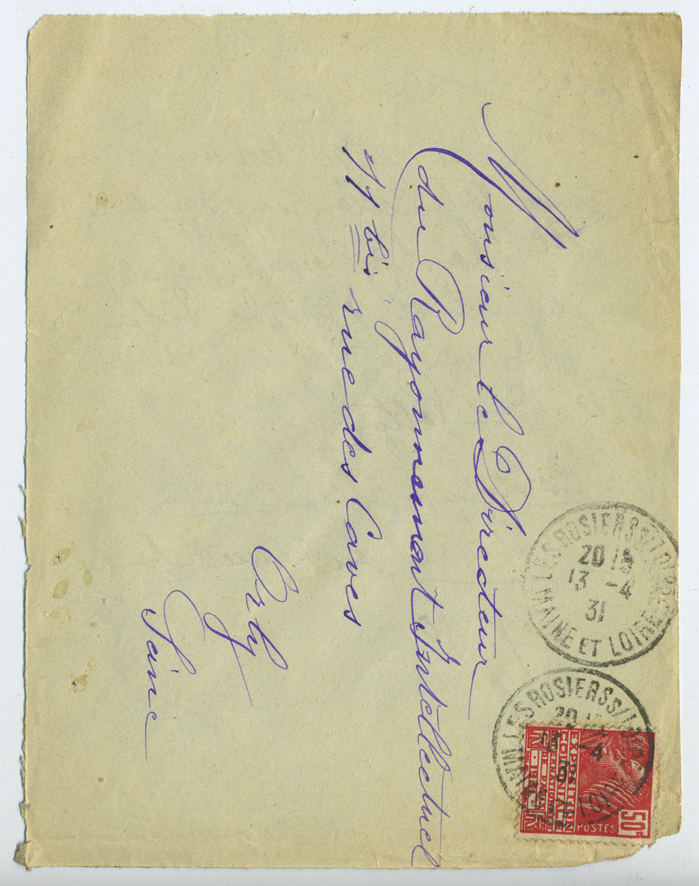 Monsieur le Directeur
du Rayonnement Intellectuel
11 bis rue des Caves
Orly
Seine
LES ROSIERS S/LOIRE
20 15
13 -4
31
MAINE ET LOIRE
LES ROSIERS S/LOIRE
-4
LOIRE
EXPOSITION
COLONIALE
INTERNATIONALE
PARIS
POSTES
50c